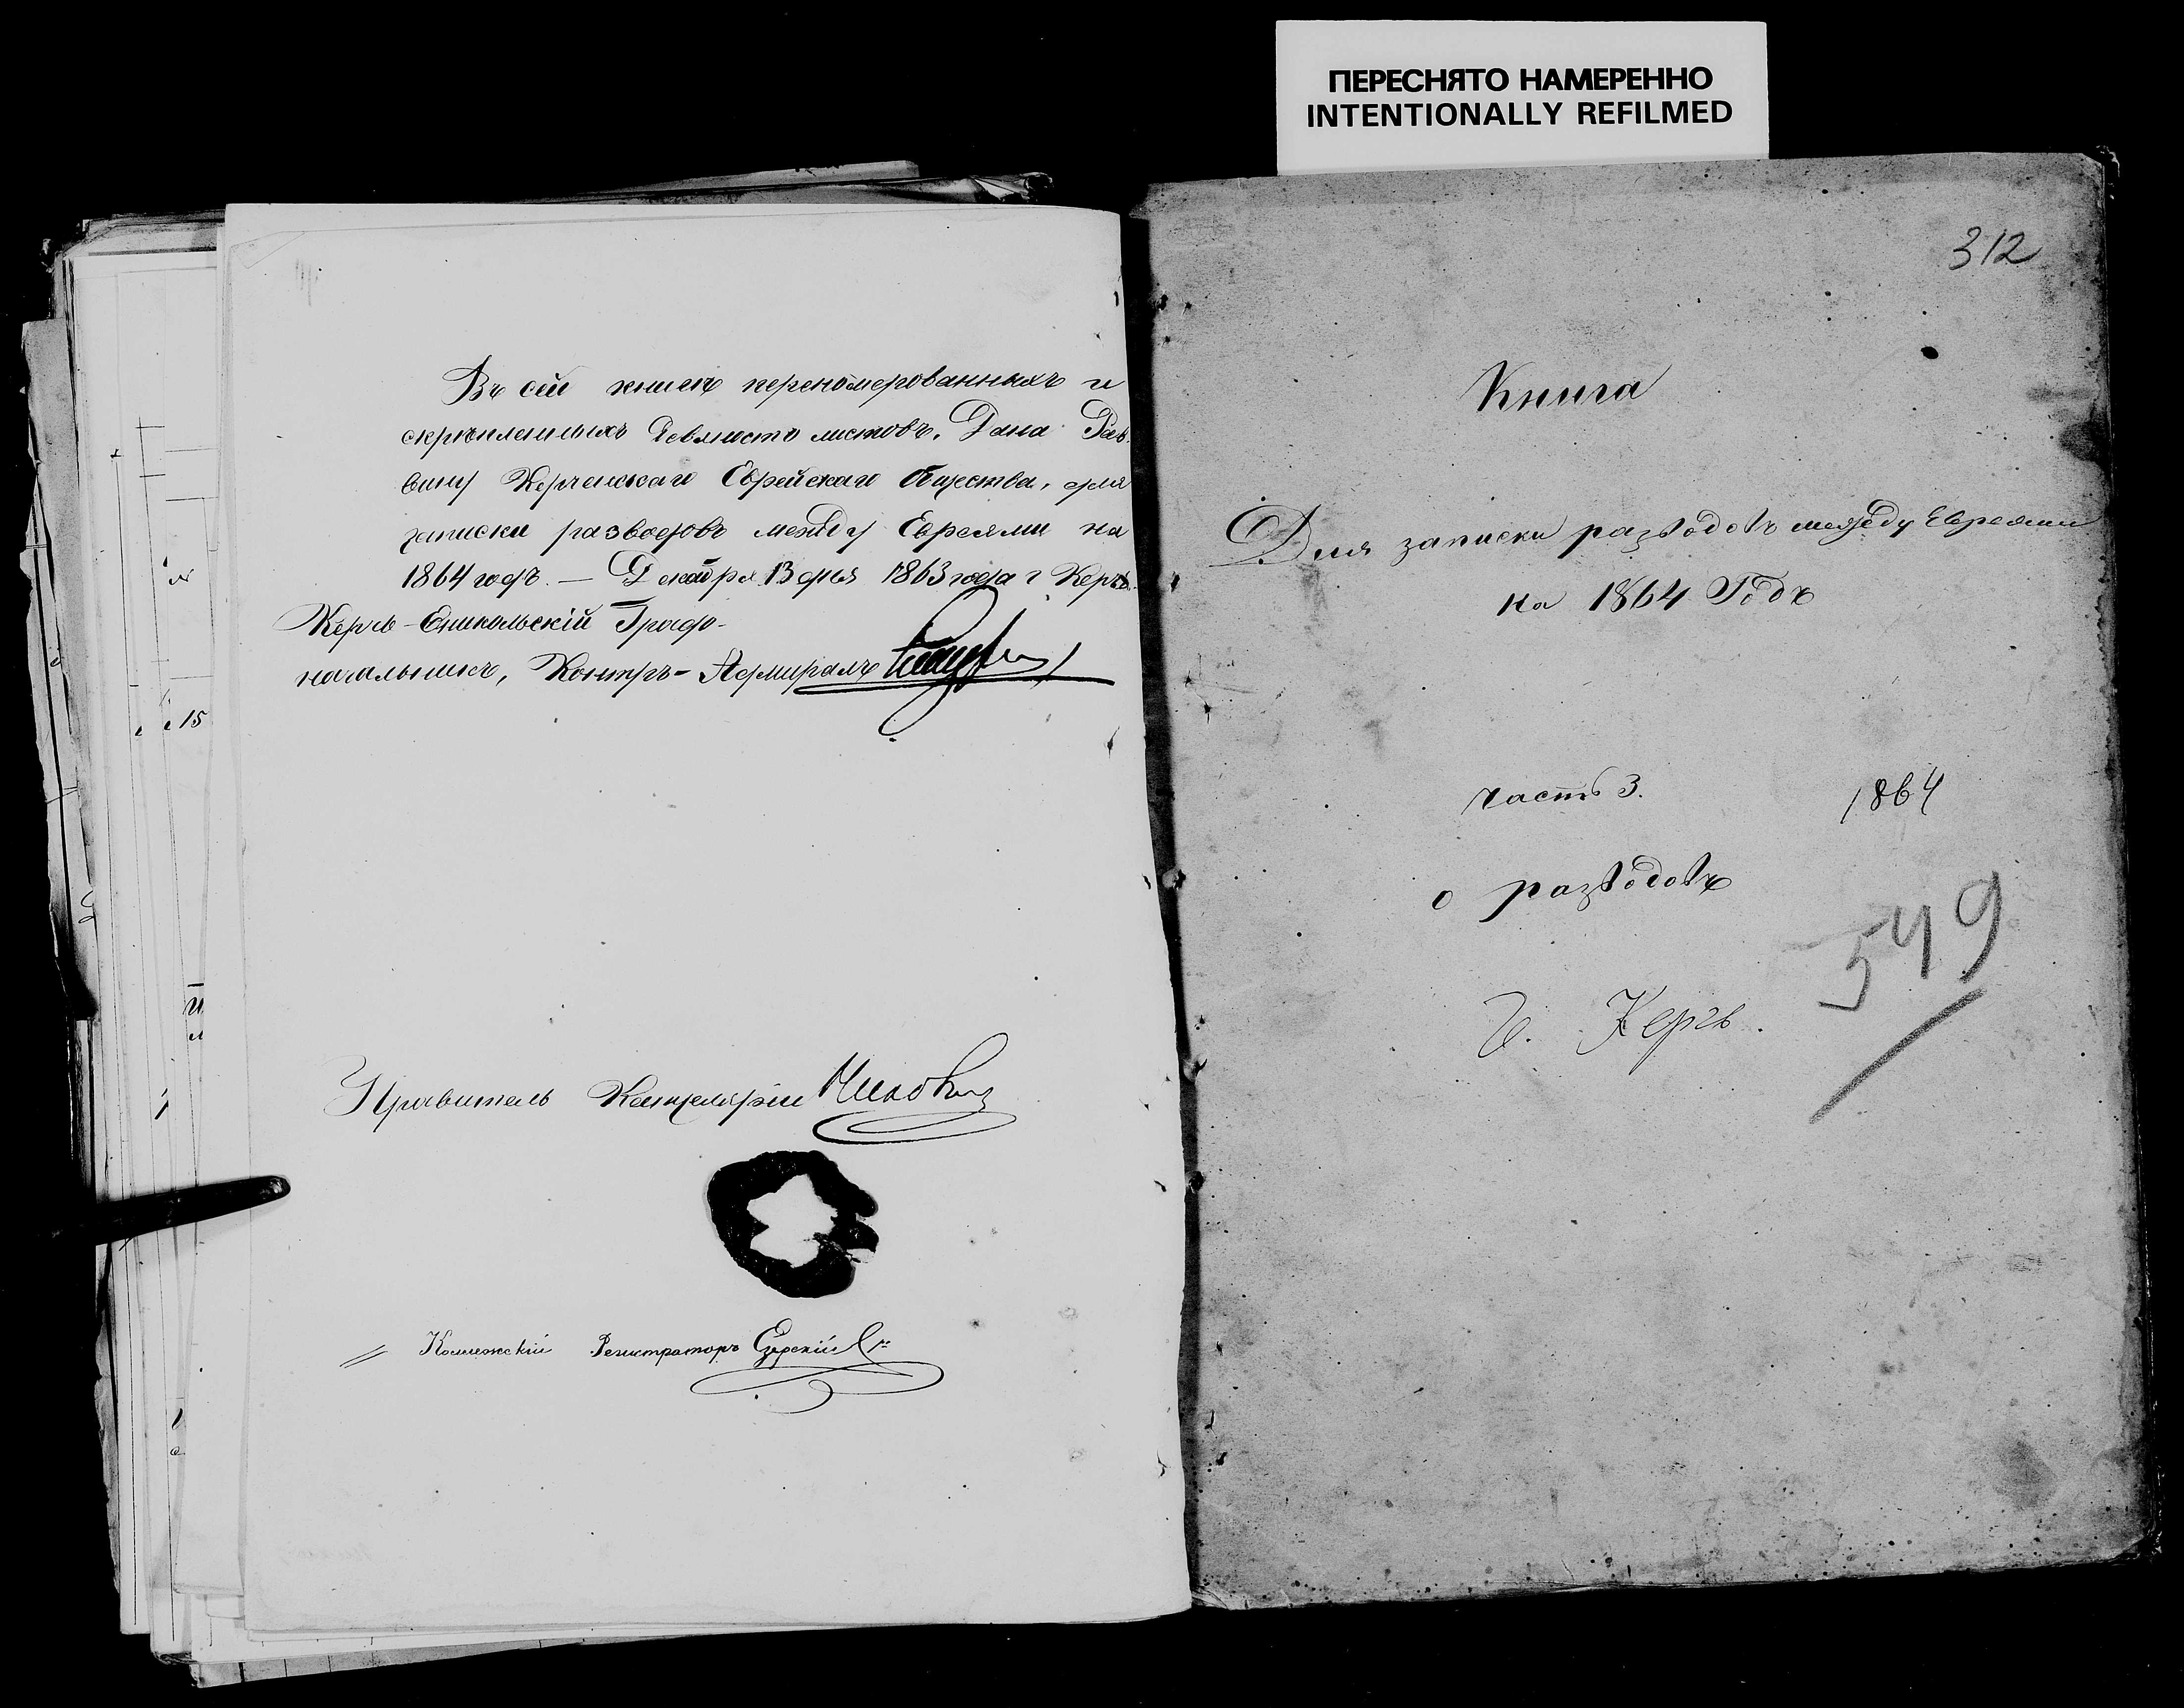 ПЕРЕСНЯТО НАМЕРЕННО
INTENTIONALLY REFILMED
Въ сей книге перенOмерованныхъ и
скрѣпленныхъ девяносто листовъ. Дана Рав-
вину Керченскаго Еврейскаго Общества, для
записки разводовъ между Евреями на
1864 годъ. — Декабря 13 дня 1863 года г Керчь.
Керчь-Еникольскій Градо-
начальникъ, Контръ-Адмиралъ
Правитель Канцеляріи
Коллежскій Регистраторъ Езерскій
15
312
Книга
Для записки разводовъ между Евреями
на 1864 Годъ
часть 3. 1864
о разводовъ
549
Г. Керчь.